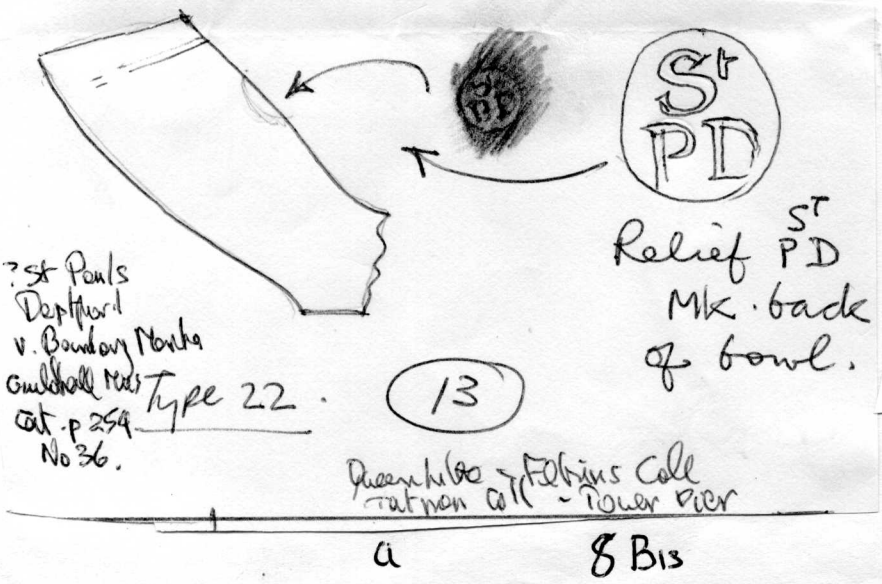 St
PD
St
PD
Relief ST
PD
Mk. back
of bowl.
? St Pauls
Deptford
v. Boundary Marks
Guildhall Mus
Cat. p 254
No 36.
Type 22.
13
Queenhithe - Elkins Coll
Tatman Coll - Tower Pier
a
8 Bis